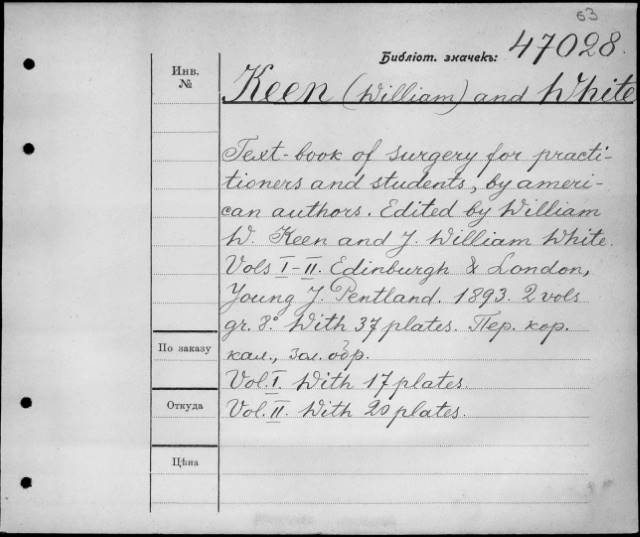 63
Библіот. значекъ: 47028.
Инв. №
Keen (William) and White
Text-book of surgery for practi-
tioners and students, by ameri-
can authors. Edited by William
W. Keen and J. William White.
Vols I-II. Edinburgh & London,
Young J. Pentland. 1893. 2 vols
gr. 8º With 37 plates. Пер. кор.
По заказу
кал., зол. обр.
Vol. I. With 17 plates.
Откуда
Vol. II. With 20 plates.
Цѣна